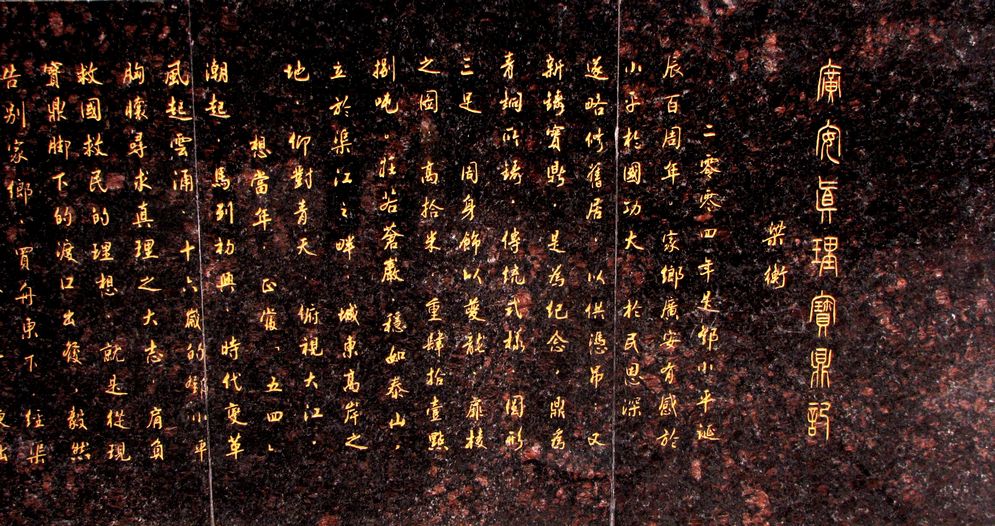 廣安真理寶鼎記
梁衡
二零零四年是鄧小平誕
辰百周年．家鄉廣安有感於
小平於國功大　於民恩深
遂略修舊居．以供憑吊．又
新鑄寶鼎．是為紀念．鼎為
青銅所鑄．傳統式樣．圓形
三足　周身飾以夔龍．扉棱
之圖　高拾米．重肆拾壹點
捌噸。莊若蒼巖．穩如泰山，
立於渠江之畔．城東高岸之
地．仰對青天．俯視大江．
想當年．正值．五四、
潮起　馬列初興　時代變革
風起雲涌．十六歲的鄧小平
胸懷尋求真理之大志　肩負
救國救民的理想．就是從現
寶鼎脚下的渡口出發．毅然
告别家鄉．買舟東下　經渠